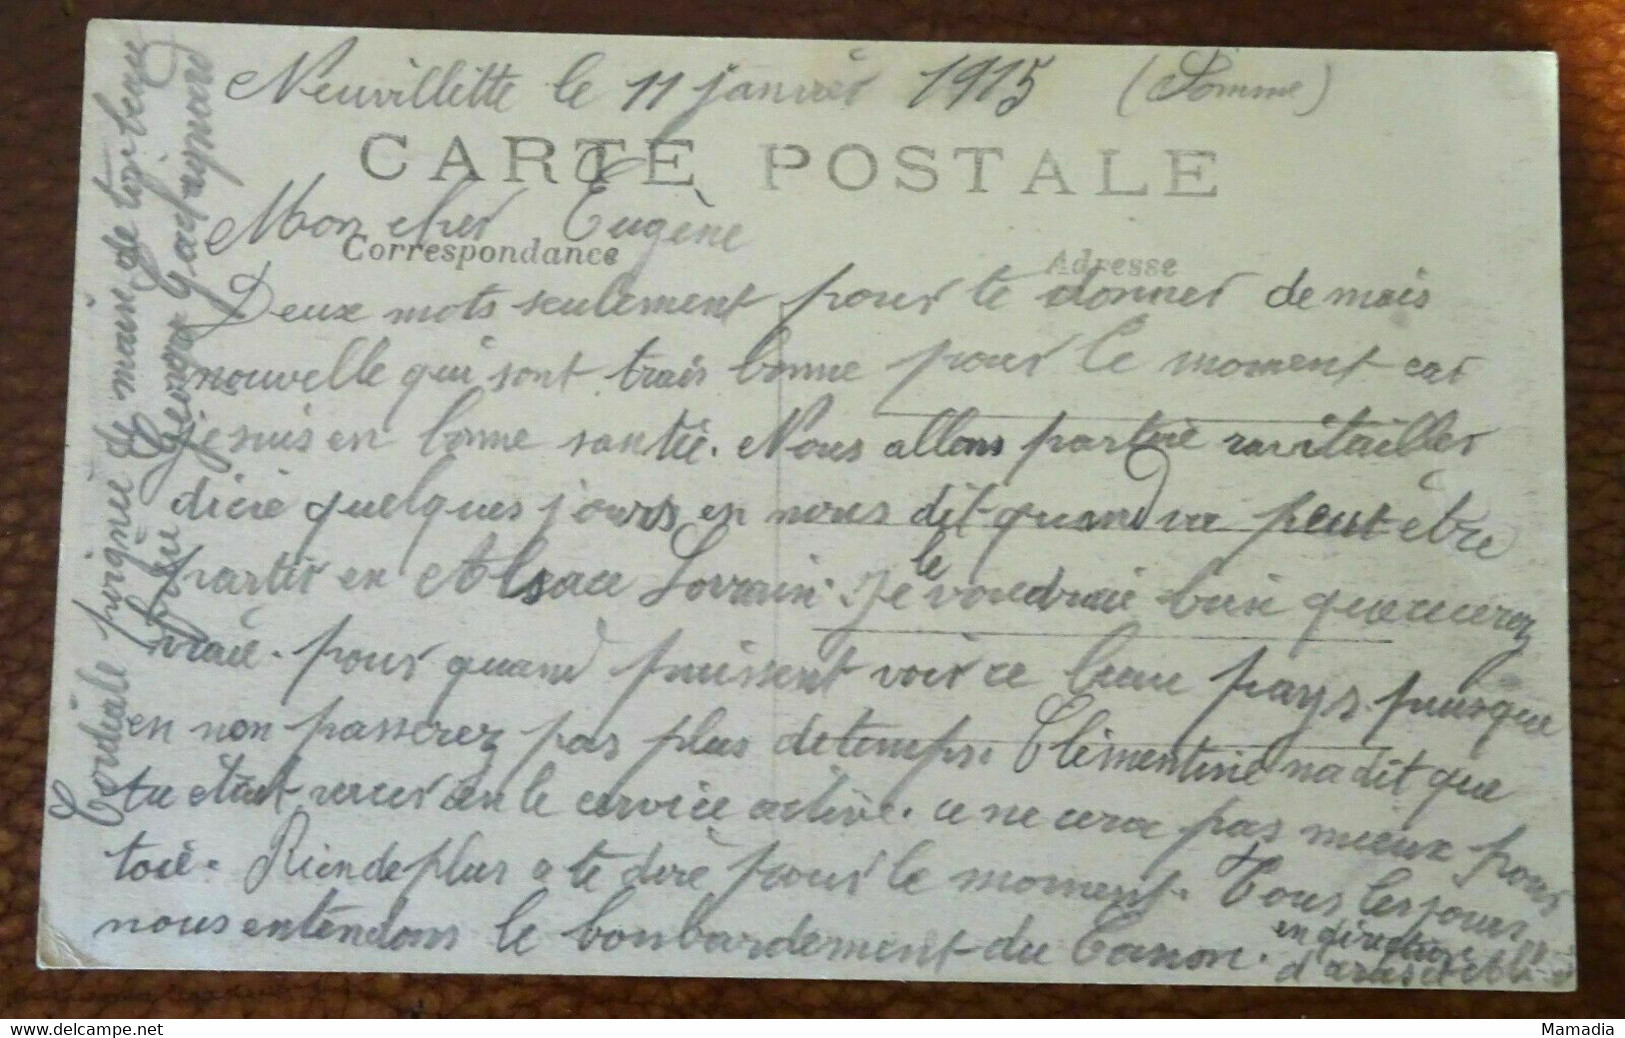 Neuvillette le 11 janvier 1915 (Somme)
CARTE POSTALE
Mon cher Eugène
Correspondance
Adresse
Deux mots seulement pour te donner de mais
nouvelle qui sont trais bonne pour le moment car
je suis en bonne santié. Nous allons partie ravitailler
dicie quelques jours en nous dit quand va peut être
partir en Alsace Lorrain. Je le voudraie bien que ce cerez
vraie. pour quand puissent voir ce beau pays. puisque
en non passerez pas plus de temps. Clémentine na dit que
tu était verser den le cervice active. ce ne cera pas mieux pour
toie. Rien de plus a te dire pour le moment. Tous les jours
nous entendons le bonbardement du Canon. en direction
d'aras et
Cordiale poignée de main de ton beau
frère Georges
Mamadia